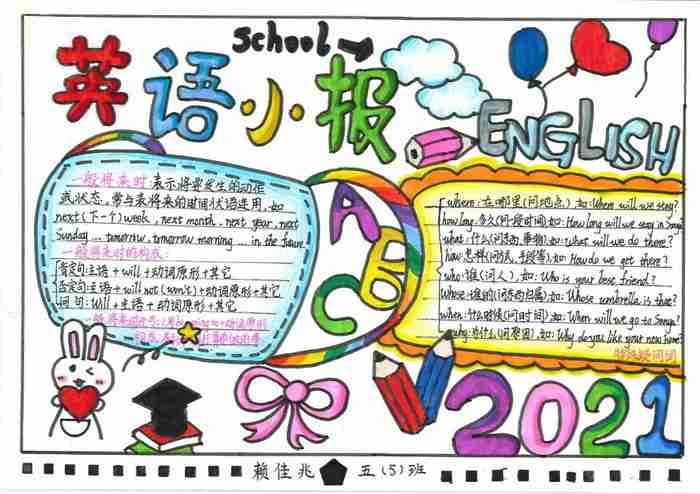 school
英语小报
ENGLISH
一般将来时:表示将要发生的动作
或状态,常与表将来的时间状语连用,如
next(下一个)week, next month, next year, next
Sunday ... tomorrow, tomorrow morning ... in the future
一般将来时的构成:
肯定句:主语+will+动词原形+其它
否定句:主语+will not(won't)+动词原形+其它
问句:Will+主语+动词原形+其它
ABC
where:在哪里(问地点),如:Where will we stay?
how long:多久(问一段时间)如:How long will we stay in Sanya?
what:什么(问东西,事物)如:What will we do there?
how:怎样(问方式,手段等)如:How do we get there?
who:谁(问人),如:Who is your best friend?
whose:谁的(问东西归属)如:Whose umbrella is that?
when:什么时候(问时间)如:When will we go to Sanya?
why:为什么(问原因),如:Why do you like your new home?
特殊疑问词
2021
赖佳兆 五(5)班